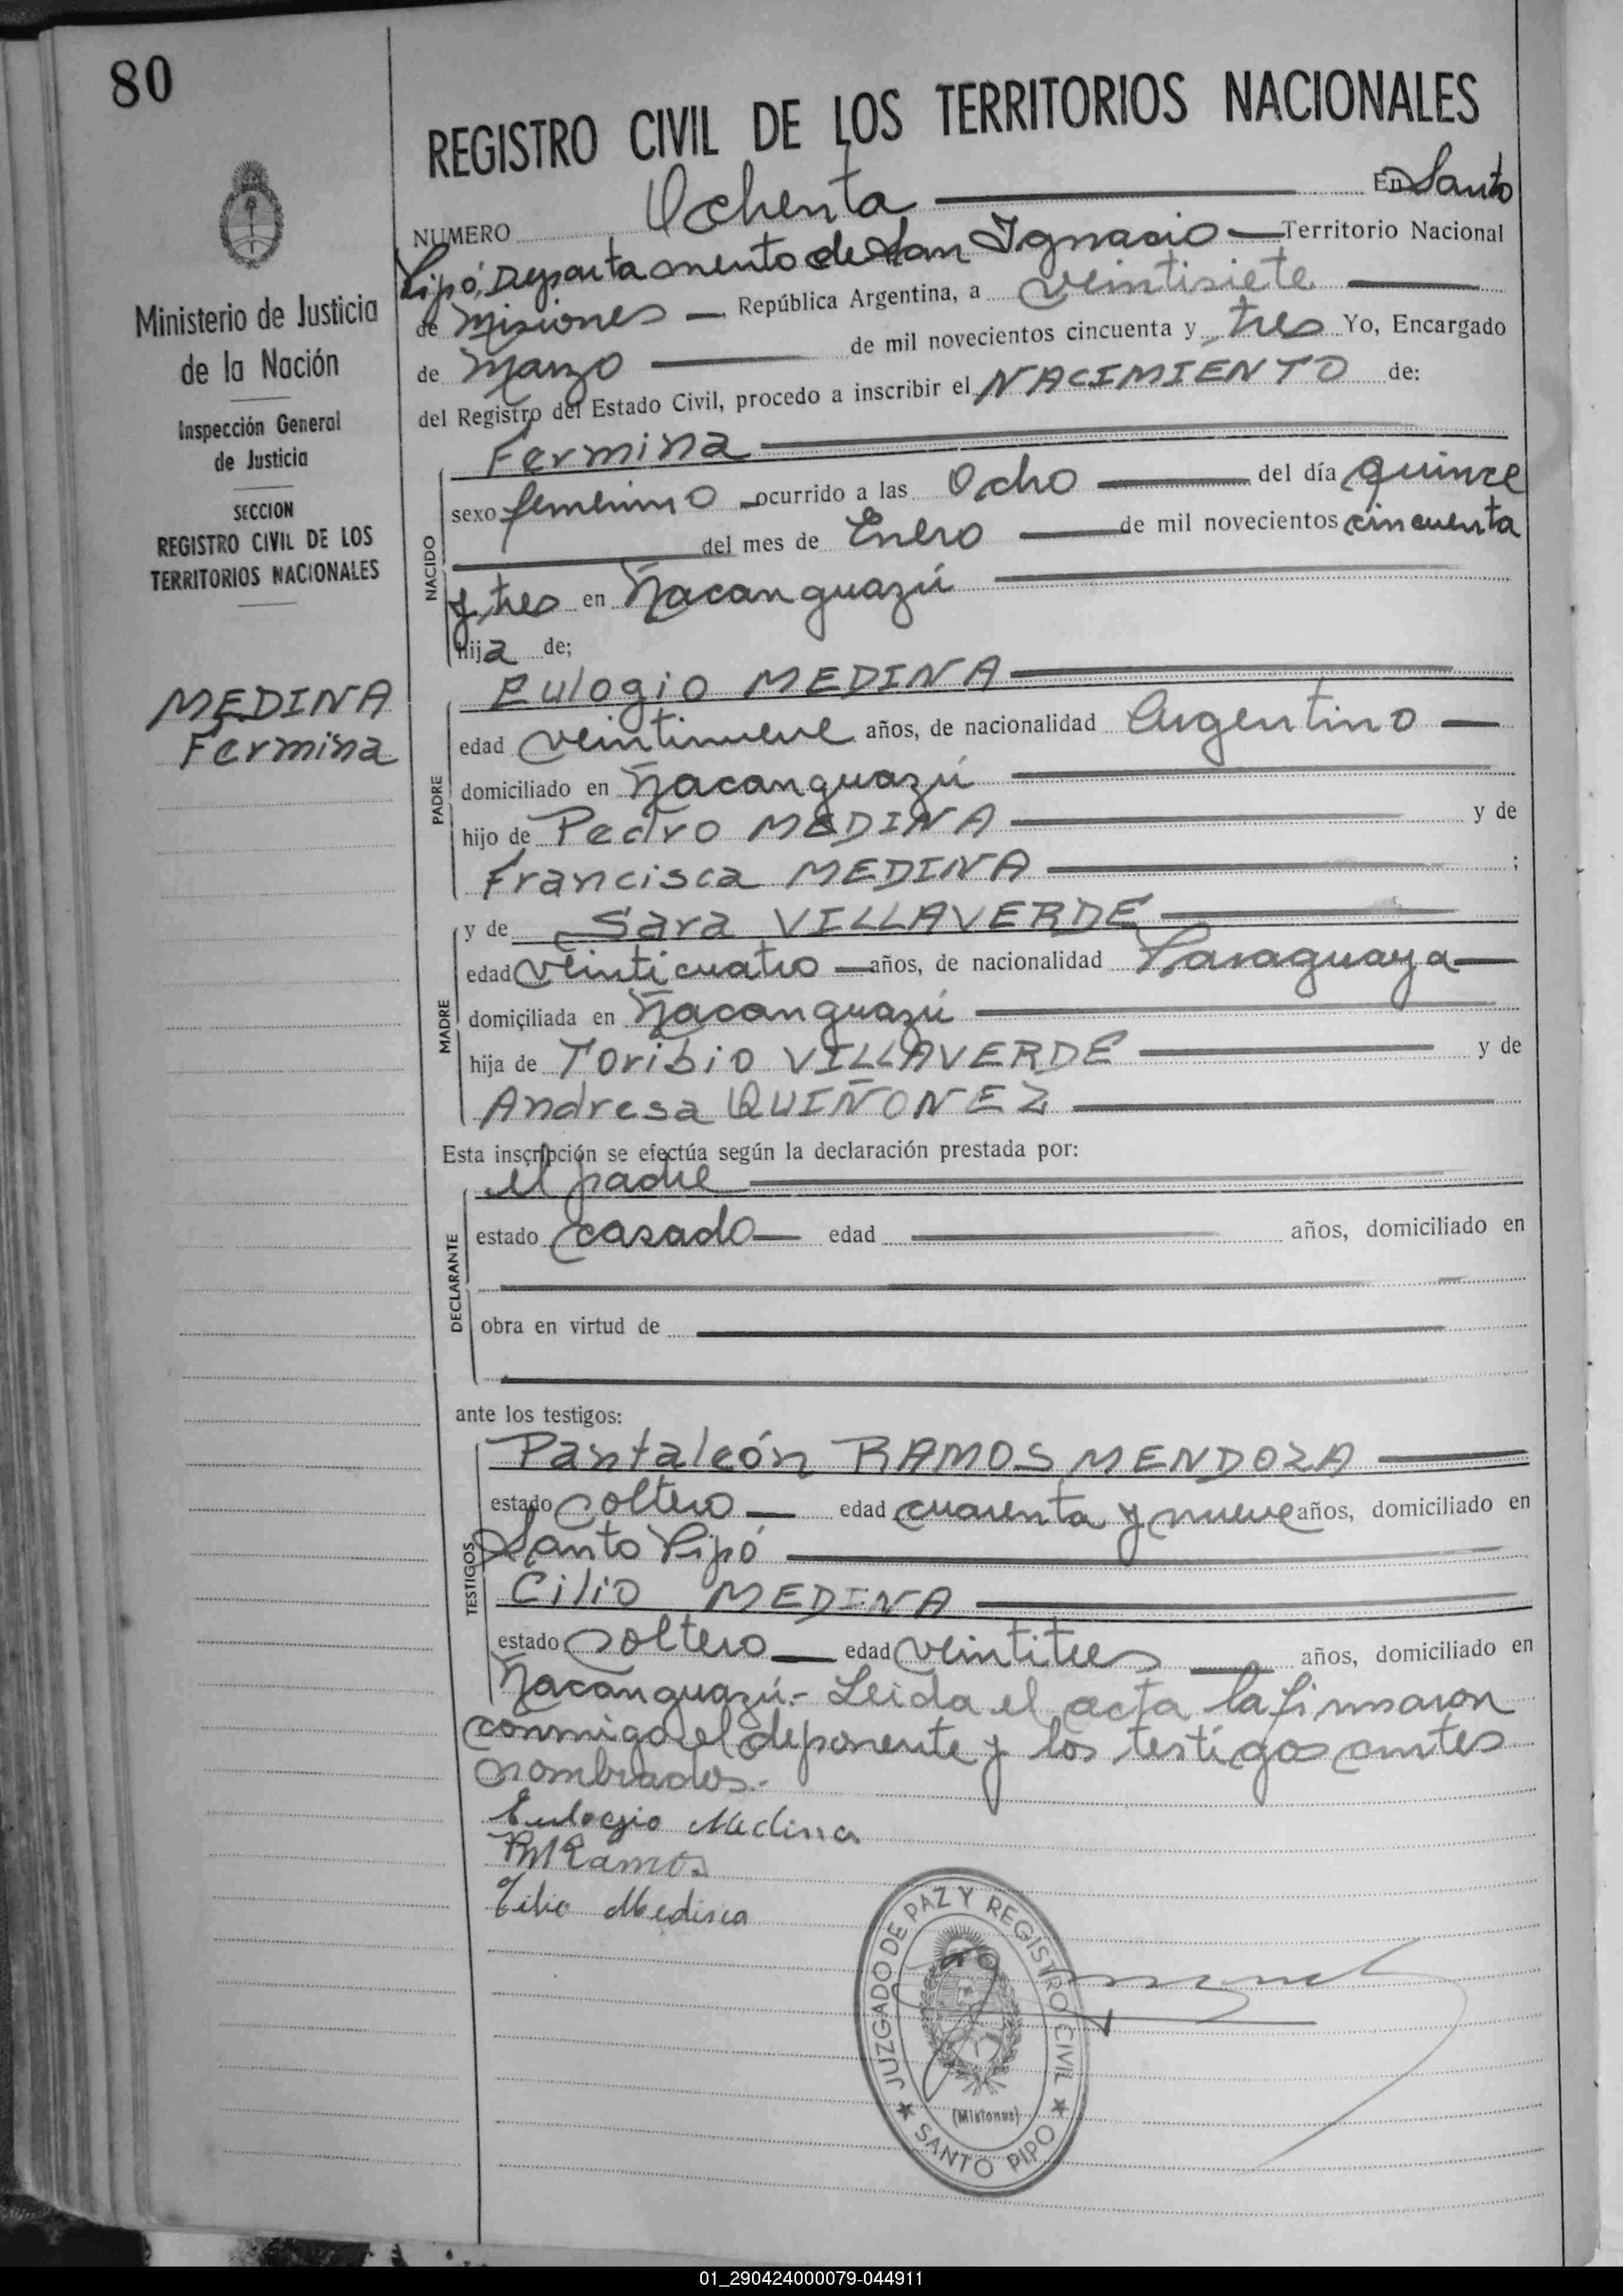 80
REGISTRO CIVIL DE LOS TERRITORIOS NACIONALES
NUMERO Ochenta En Santo
Pipó, Departamento de San Ignacio Territorio Nacional
de Misiones República Argentina, a veintisiete
de Marzo de mil novecientos cincuenta y tres Yo, Encargado
del Registro del Estado Civil, procedo a inscribir el NACIMIENTO de:
Ministerio de Justicia
de la Nación
Inspección General
de Justicia
SECCION
REGISTRO CIVIL DE LOS
TERRITORIOS NACIONALES
MEDINA
Fermina
NACIDO
Fermina
sexo femenino ocurrido a las Ocho del día quince
del mes de Enero de mil novecientos cincuenta
y tres en Ñacanguazú
hija de;
PADRE
Eulogio MEDINA
edad veintinueve años, de nacionalidad Argentino
domiciliado en Ñacanguazú
hijo de Pedro MEDINA y de
Francisca MEDINA ;
MADRE
y de Sara VILLAVERDE
edad veinticuatro años, de nacionalidad Paraguaya
domiciliada en Ñacanguazú
hija de Toribio VILLAVERDE y de
Andresa QUIÑONEZ
Esta inscripción se efectúa según la declaración prestada por:
DECLARANTE
el padre
estado casado edad años, domiciliado en
obra en virtud de
ante los testigos:
TESTIGOS
Pantaleón RAMOS MENDOZA
estado soltero edad cuarenta y nueve años, domiciliado en
Santo Pipó
Cilio MEDINA
estado soltero edad veintitres años, domiciliado en
Ñacanguazú.- Leida el acta la firmaron
conmigo el deponente y los testigos antes
nombrados.-
Eulogio Medina
PMRamos
Cilio Medina
JUZGADO DE PAZ Y REGISTRO CIVIL
(Misiones)
★ SANTO PIPO ★
01_290424000079-044911